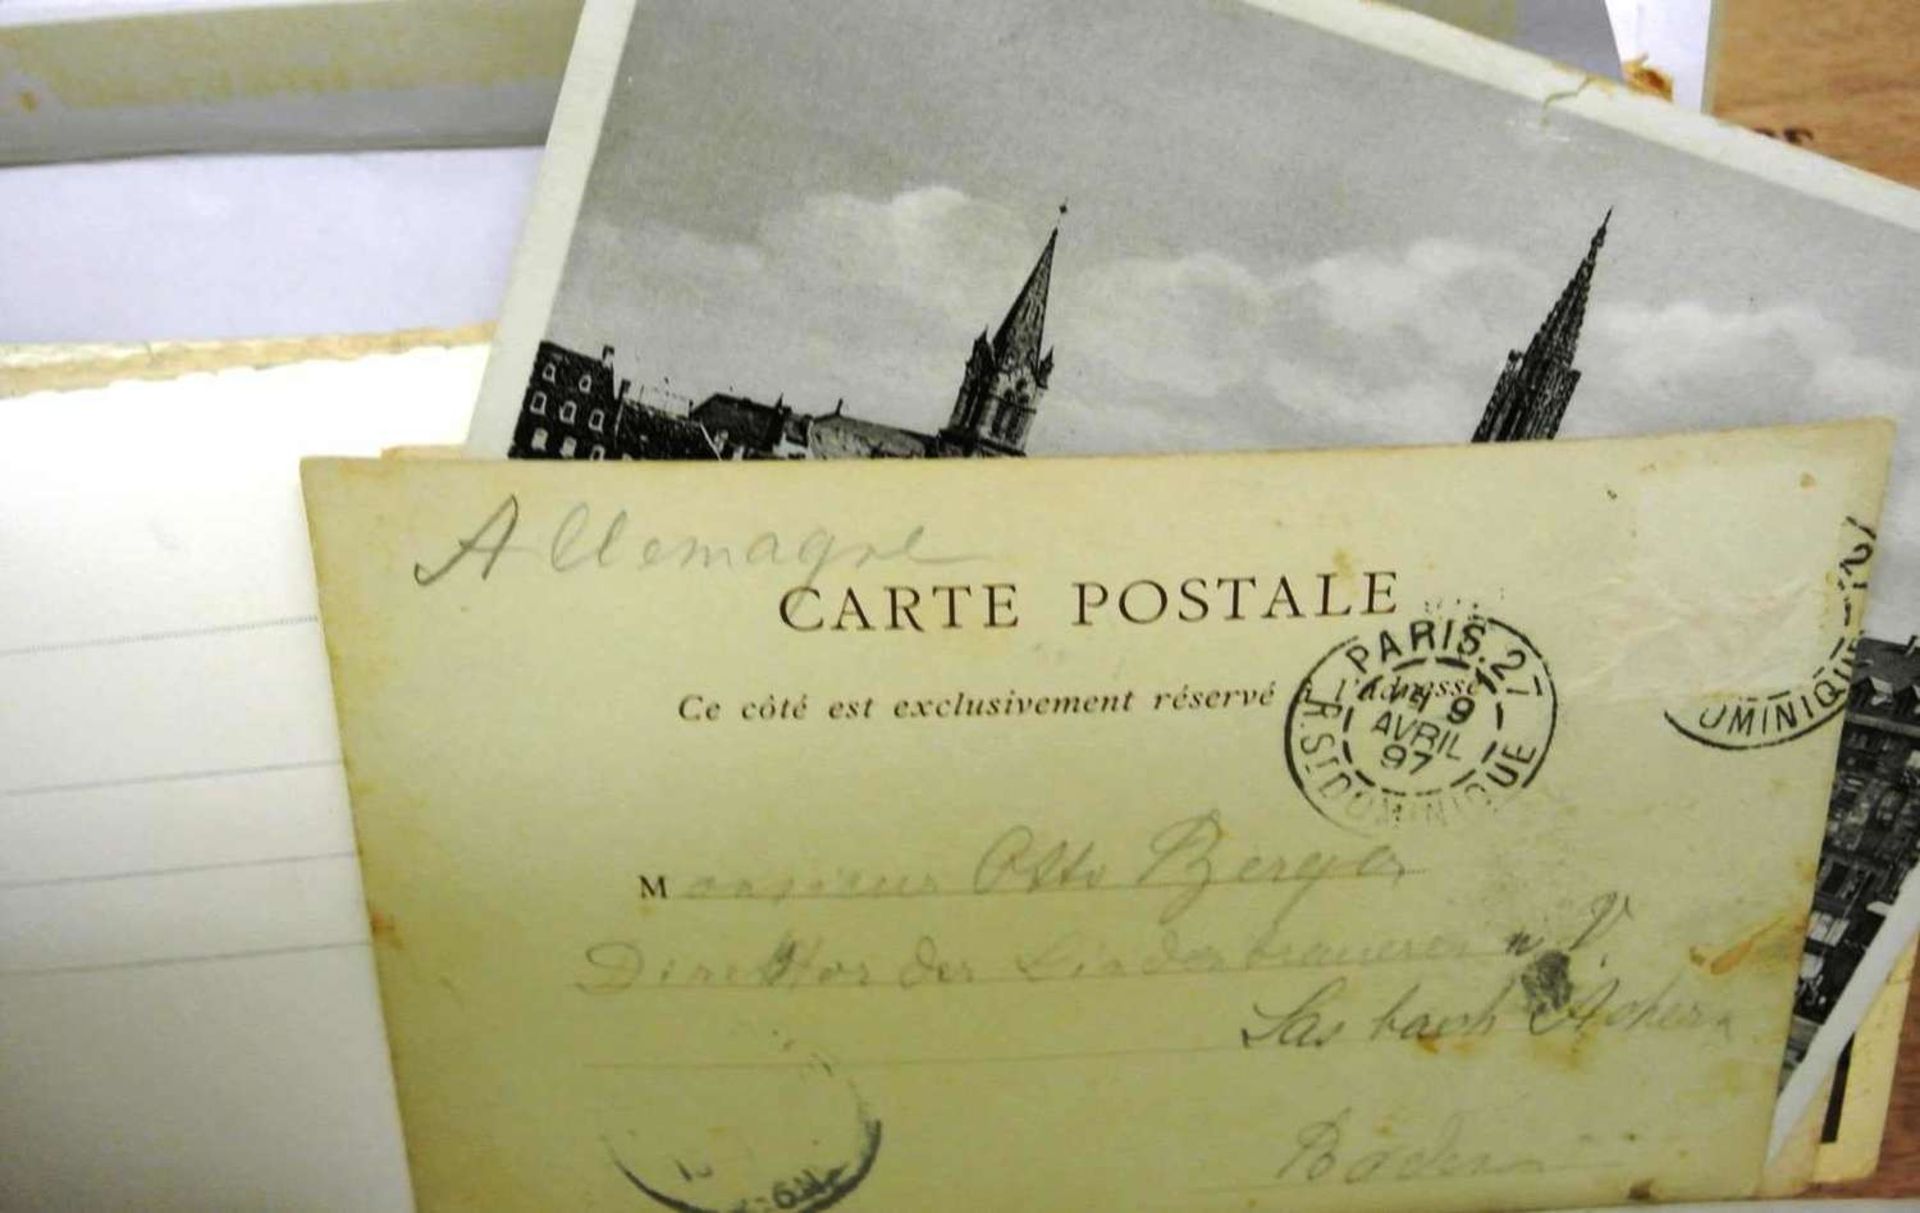 Allemagne
CARTE POSTALE
Ce côté est exclusivement réservé à l'Adresse
PARIS. 27
9
AVRIL
97
R. ST DOMINIQUE
OMINIQUE
Monsieur Otto Berger
Direktor der Lindenbrauerei
Sasbach Achern
Baden